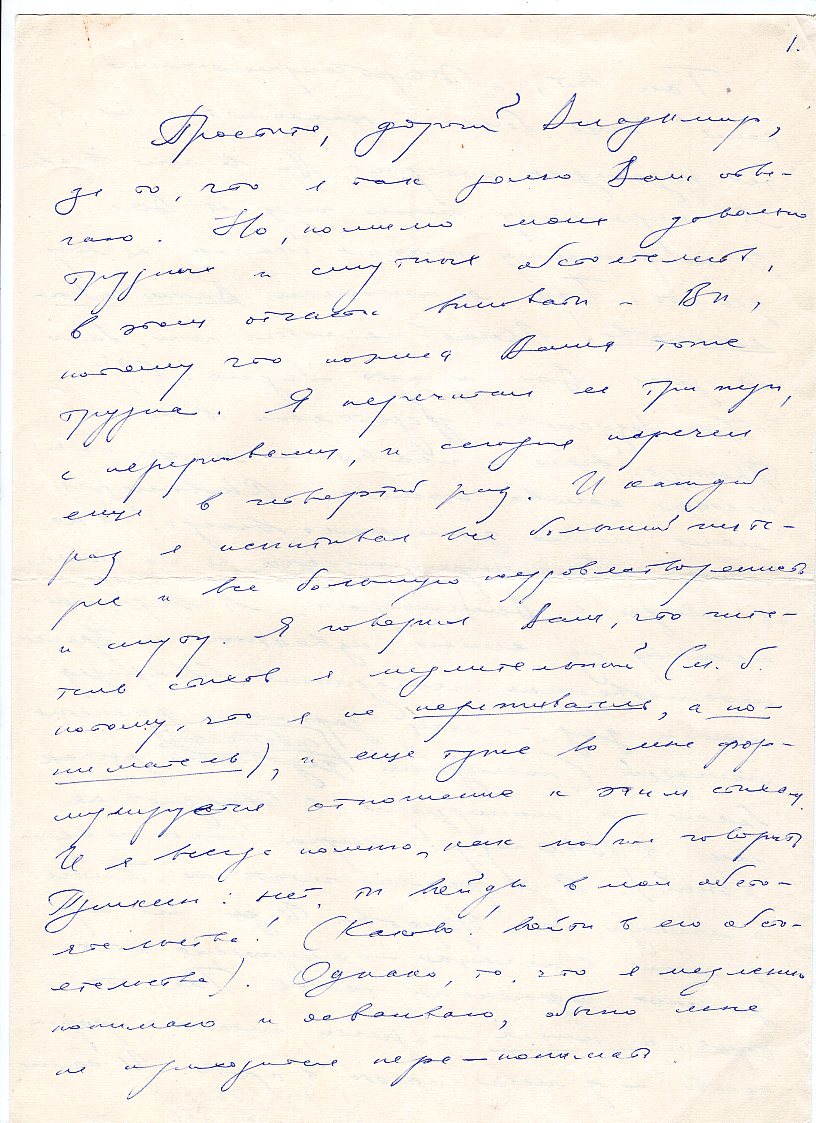 1.
Простите, дорогой Владимир,
за то, что я так долго Вам отве-
чаю. Но, помимо моих довольно
трудных и смутных обстоятельств,
в этом отчасти виноваты – Вы,
потому что поэма Ваша тоже
трудна. Я перечитал ее три раза,
с перерывами, и сегодня перечел
еще в четвертый раз. И каждый
раз я испытывал все больший инте-
рес и все большую неудовлетворенность
и смуту. Я говорил Вам, что чита-
тель стихов я медлительный (м. б.
потому, что я не переживатель, а по-
ниматель), и еще туже во мне фор-
мулируется отношение к этим стихам.
И я всегда помню, как любил говорить
Пушкин: нет, ты войди в мои обсто-
ятельства! (Каково! войти в его обсто-
ятельства). Однако, то, что я медленно
понимаю и осваиваю, обычно мне
не приходится пере–понимать.